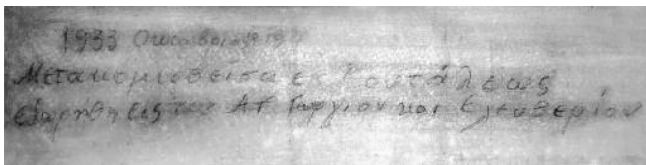 1933 Οκτωβρίου 19
Μετακομισθεισα εκ Κουτάλεως
εδωρήθη εις τον Αγ Γεώργιον και Ελευθερίον